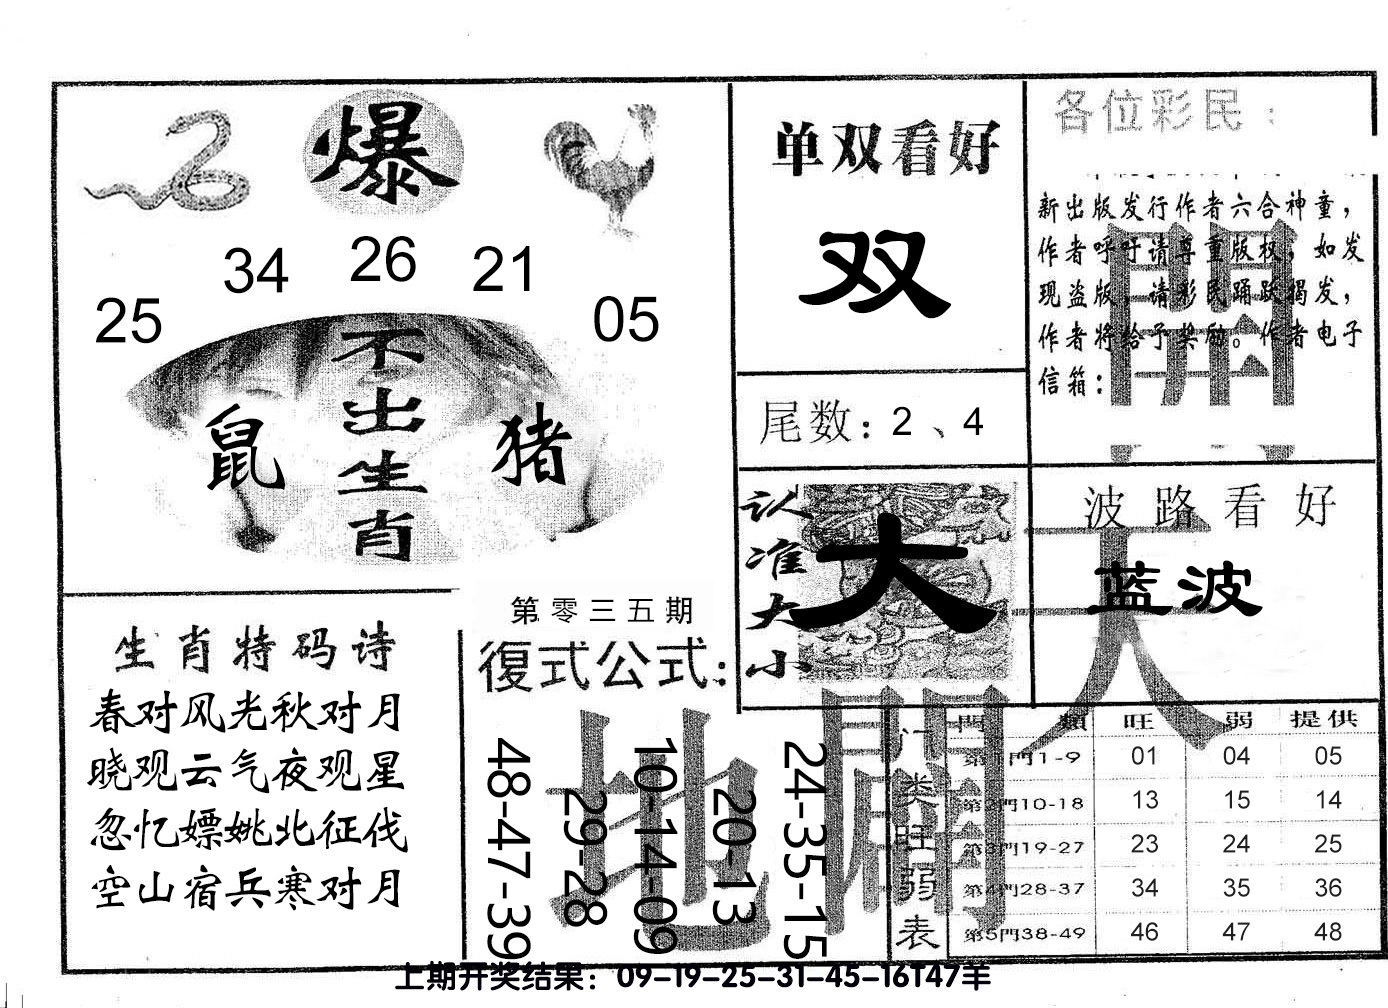 爆
34 26 21
25 05
不出生肖
鼠 猪
单双看好
双
尾数: 2 、4
认准大小
大
各位彩民:
新出版发行作者六合神童，
作者呼吁请尊重版权，如发
现盗版，请彩民踊跃揭发，
作者将给予奖励。作者电子
信箱:
波路看好
蓝波
天
開
地
開
生肖特码诗
春对风光秋对月
晓观云气夜观星
忽忆嫖姚北征伐
空山宿兵寒对月
第零三五期
復式公式:
48-47-39
29-28
10-14-09
20-13
24-35-15
门类旺弱表
門類 旺 弱 提供
第1門1-9 01 04 05
第2門10-18 13 15 14
第3門19-27 23 24 25
第4門28-37 34 35 36
第5門38-49 46 47 48
上期开奖结果：09-19-25-31-45-16T47羊